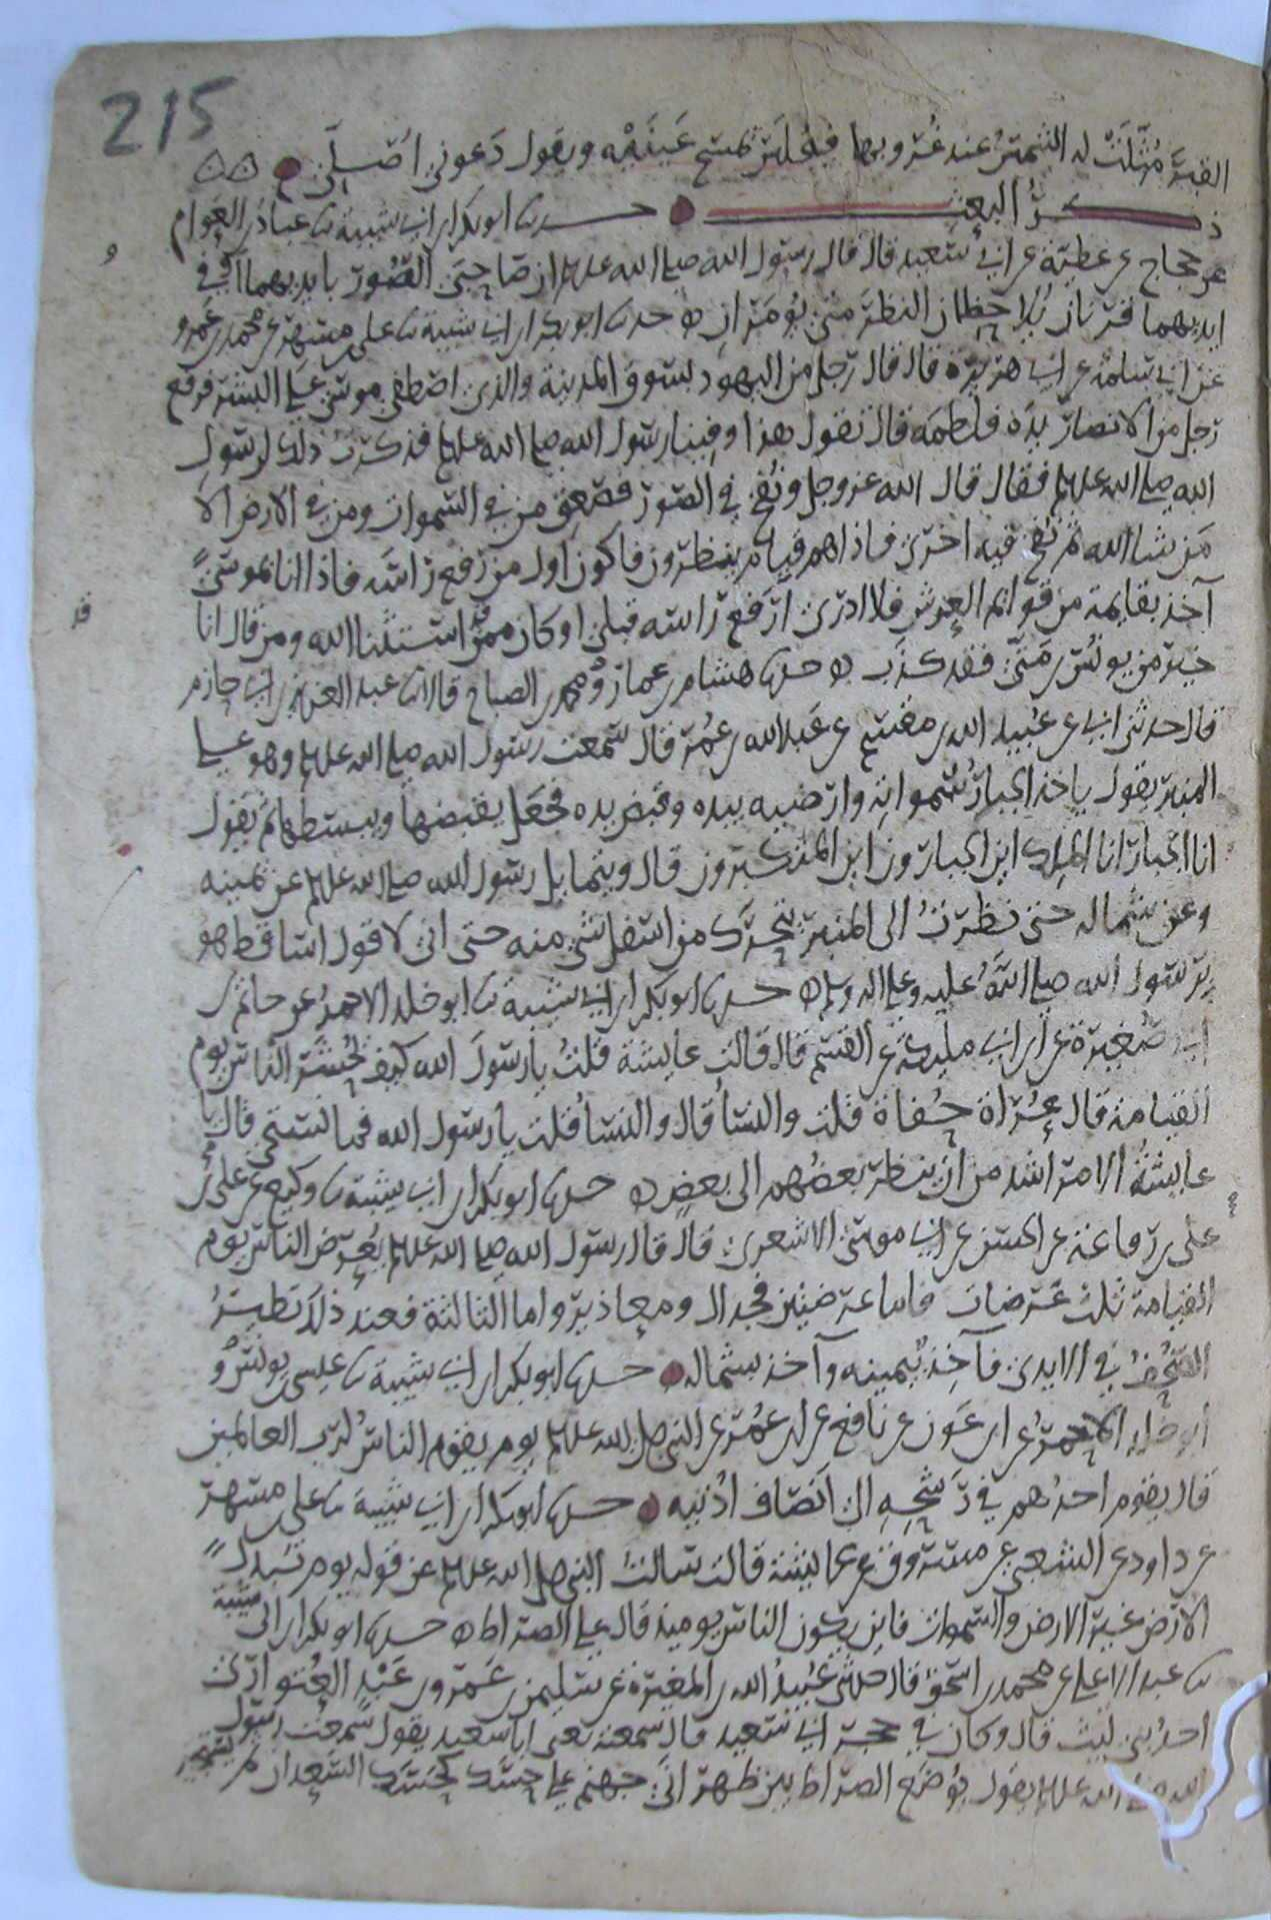 215
القبر مُثِّلَتْ له الشمسُ عند غُروبها فيجلس يمسح عَينَيْه ويقول دَعوني اُصَلِّي
ذِكرُ البعث حدثنا ابو بكر ابن ابي شيبة نا عباد بن العوام
عن حجاج عن عطية عن ابي سعيد قال قال رسول الله صلى الله عليه وسلم ان صاحِبَى الصُور بايديهما او في
ايديهما قرنان يُلاحِظان النظرَ متى يُؤمَران حدثنا ابو بكر ابن ابي شيبة نا علي بن مسهر عن محمد بن عمرو
عن ابي سلمة عن ابي هريرة قال قال رجل من اليهود بسوق المدينة والذي اصطفى موسى على البشر فرفع
رجل من الانصار يده فلطمه قال تقول هذا وفينا رسول الله صلى الله عليه وسلم فذكرت ذلك لرسول
الله صلى الله عليه وسلم فقال قال الله عز وجل ونُفخ في الصور فصَعِق من في السموات ومن في الارض الا
مَن شا الله ثم نفخ فيه اخرى فاذا هم قيام ينظرون فاكون اول من رَفع راسَه فاذا انا بموسى
آخذ بقايمة من قوائم العرش فلا ادرى ارَفع راسه قبلى او كان ممن استثنا الله ومن قال انا
خير من يونس بن متى فقد كذب حدثنا هشام بن عمار ومحمد بن الصباح قالا نا عبد العزيز بن ابي حازم
قال حدثنى ابي عن عُبيد الله بن مقسم عن عَبد الله بن عُمر قال سمعت رسول الله صلى الله عليه وسلم وهو على
المنبر يقول ياخذ الجبارُ سمواتِه وارَضيه بيده وقبض يده فجعل يقبضها ويبسطها ثم يقول
انا الجبار انا الملك اين الجبارون اين المتكبرون قال ويتمايل رسول الله صلى الله عليه وسلم عن يمينه
وعن شماله حتى نظرتُ الى المنبر يتحرك من اسفل شي منه حتى انى لاقول اساقط هو
برسول الله صلى اللهُ عليه وعلى اله وسلم حدثنا ابو بكر ابن ابي شيبة نا ابو خلد الاحمر عن حاتم بن
ابي صغيرة عن ابن ابي مليكة عن القسم قال قالت عايشة قلتُ يا رسولَ الله كيف يُحشَر الناس يوم
القيامة قال عُراة حُفاة قلت والنسا قال والنسا قلت يا رسول الله فما نستحى قال يا
عايشة الامر اشد من ان ينظر بعضُهم الى بعضٍ حدثنا ابو بكر ابن ابي شيبة نا وكيع عن علي بن
علي بن رفاعة عن الحسن عن ابي موسى الاشعرى قال قال رسول الله صلى الله عليه وسلم يُعرَض الناس يوم
القيامة ثلث عَرضات فاما عرضتين فجدال ومعاذير واما الثالثة فعند ذلك تطيرُ
الصُحُفُ في الايدى فآخِذٌ بيمينه وآخذ بشماله حدثنا ابو بكر ابن ابي شيبة نا عيسى بن يونس و
ابو خلد الاحمر عن ابن عَون عن نافع عن ابن عمر عن النبي صلى الله عليه وسلم يوم يقوم الناسُ لرب العالمين
قال يقوم احدُهم في رَشحِهِ الى انصاف اُذنيه حدثنا ابو بكر ابن ابي شيبة نا علي بن مسهر
عن داود عن الشعبي عن مسروق عن عايشة قالت سالت النبي صلى الله عليه وسلم عن قوله يوم تُبدل
الارض غير الارض والسموات فاين يكون الناس يوميذ قال على الصراط حدثنا ابو بكر ابن ابي شيبة
نا عبد الاعلى عن محمد بن اسحق قال حدثنى عُبيدُ الله بن المغيرة عن سليمن بن عَمرو بن عَبْد العُتوارى
احد بنى ليث قال وكان في حجر ابي سعيد قال سمعته يعنى ابا سعيد يقول سمعت رسول
الله صلى الله عليه وسلم يقول يُوضَع الصراط بين ظهرانَى جهنم على حسَك كحَسَك السَعدان ثم يستجيز